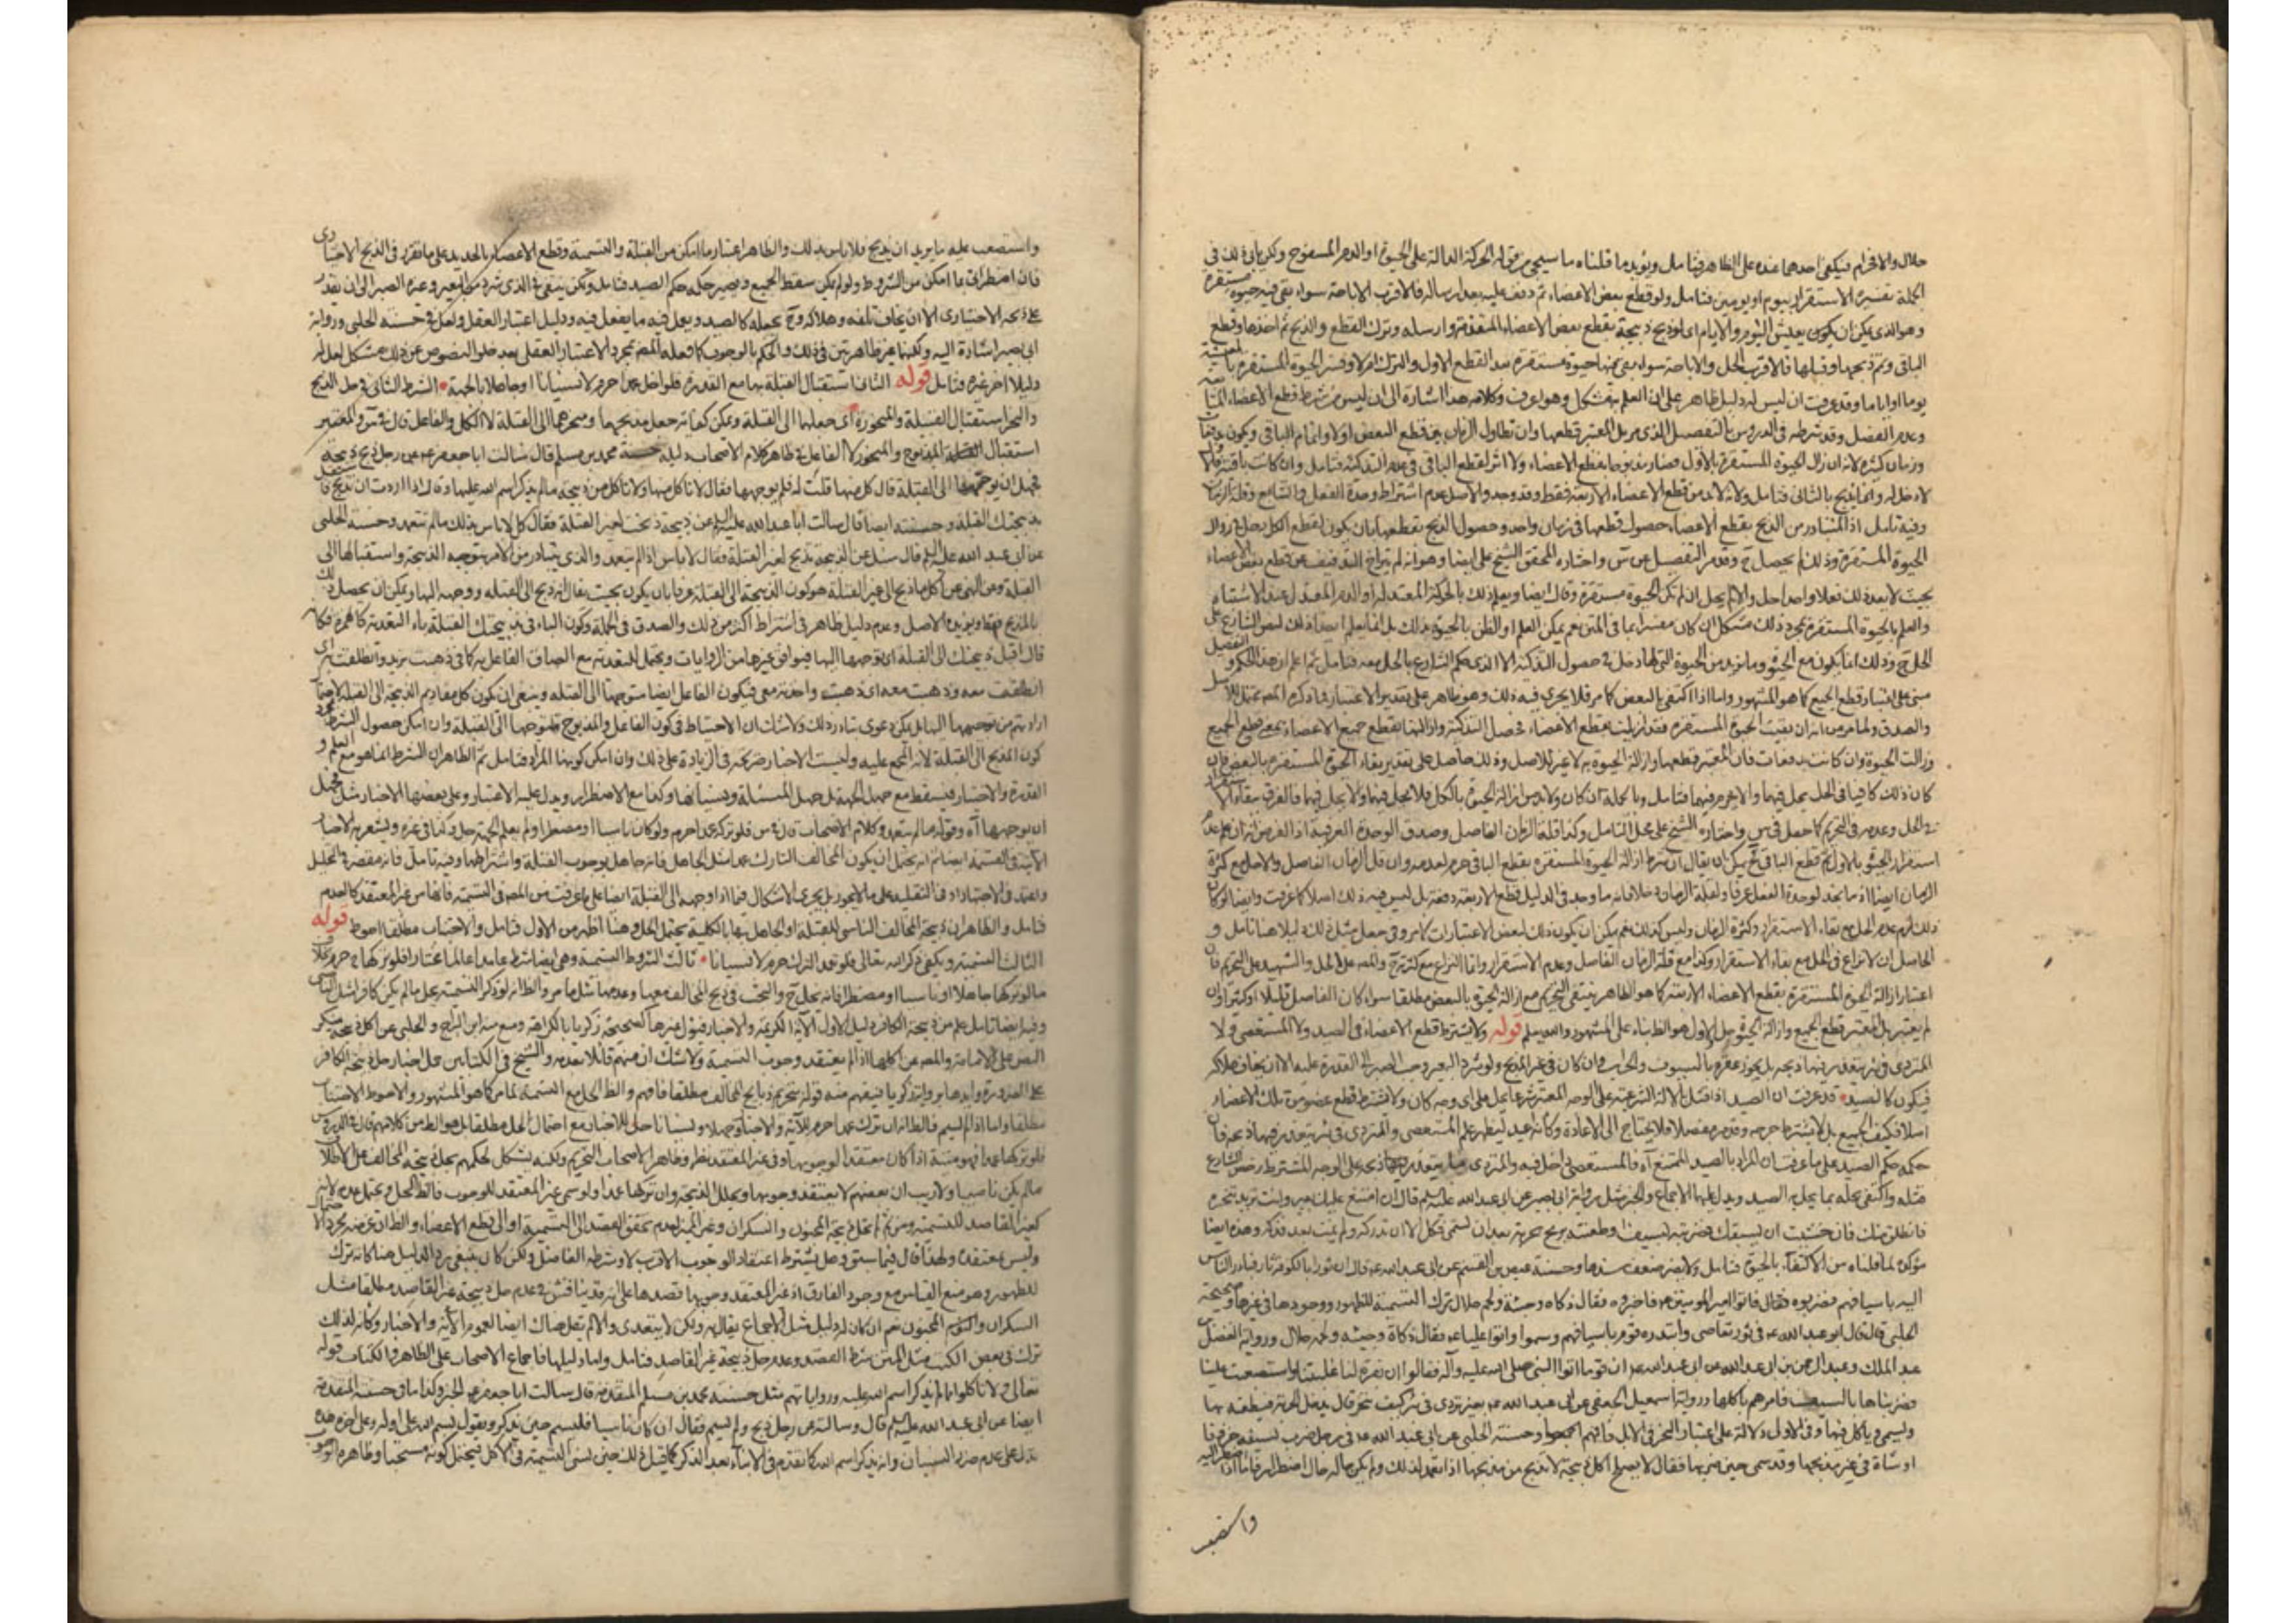 حلال والاخرام فيكفى احدهما عنده على الظاهر فتامل ويؤيد ما قلناه ما سيجى من قوله الحركة الدالة على الحيوة او الدم المسفوح ولكن يابى ذلك فى
الجملة تفسيره الاستقرار بيوم او يومين فتامل ولو قطع بعض الاعضاء ثم دفف عليه بعد ارساله فالاقرب الاباحة سواء بقى فيه حيوة مستقرة
وهو الذى يمكن ان يكون يعيش اليوم والايام اى لو ذبح ذبيحة بقطع بعض الاعضاء المتقدمة وارسله وترك القطع والذبح ثم اخذها وقطع
الباقى وتم ذبحها وقتلها فالاقرب الحل والاباحة سواء بقى فيها حيوة مستقرة بعد القطع الاول والترك ام لا وفسر الحيوة المستقرة
يوما او اياما وقد عرفت ان ليس له دليل ظاهر على ان العلم به مشكل وهو اعرف وكلامه هذا اشارة الى ان ليس من شرط قطع الاعضاء
وعدم الفصل وقد شرطه فى الدروس بالتفصيل الذى مر بل المعتبر قطعها وان تطاول الزمان بين قطع البعض اولا واتمام الباقى ويكون
وزمان كثيرة لانه ان زال الحيوة المستقرة بالاول فصار مذبوحا بقطع الاعضاء ولا اثر لقطع الباقى فى عدم التذكية فتامل وان كانت باقية
لا دخل له وانما يقبح بالثانى فتامل ولانه لابد من قطع الاعضاء الاربعة فقط وقد وجد والاصل عدم اشتراط وحدة الفعل والتتابع وقلة الزمان
وفيه تامل اذ المتبادر من الذبح بقطع الاعضاء حصول قطعها فى زمان واحد وحصول الذبح بقطعها بان يكون لقطع الكل دخل فى زوال
الحيوة المستقرة وذلك لم يحصل ح وقد مر التفصيل عن س واختاره المحقق الشيخ على ايضا وهو انه لم يتراخ اليد قبض عن قطع بعض الاعضاء
بحيث لا يعد ذلك فعلا واحدا حل والا لم يحل ان لم تكن الحيوة مستقرة وقال ايضا ويعلم ذلك بالحركة المعتدلة او الدم المعتدل عند الاشتباه
والعلم بالحيوة المستقرة بمجرد ذلك مشكل ان كان معتبرا بما فى المتن نعم يمكن العلم او الظن بالحيوة بذلك
الحل ح وذلك انما يكون مع الحيوة وما نريد من الحيوة التى لها دخل فى حصول التذكية الا الذى حكم الشارع بالحل معه فتامل ثم اعلم ان هذا الحكم
مبنى على اعتبار قطع الجميع كما هو المشهور واما اذا اكتفى بالبعض كما مر فلا يجرى فيه ذلك وهو ظاهر على تقدير الاعتبار
والصدق ولما مر من انه ان بقيت الحيوة المستقرة فقد زيلت بقطع الاعضاء فحصل التذكية وازالتها بقطع جميع الاعضاء بمعنى قطع الجميع
وزالت الحيوة وان كانت بدفعات فان المعتبر قطعها وازالة الحيوة به لا غير للاصل وذلك حاصل على تقدير بقاء الحيوة المستقرة بالبعض فان
كان ذلك كافيا فى الحل يحل فيهما والا يحرم فيهما فتامل وبالجملة ان كان ولابد من ازالة الحيوة بالكل فلا يحل فيهما ولا يحل فيهما فالفرق ببقاء
فى الحل وعدمه فى التحريم كما جعل فى س واختاره الشيخ على محل التامل وكذا قلة الزمان الفاصل وصدق الوحدة العرفية اذ الغرض
استقرار الحيوة بالاول ثم قطع الباقى ح يمكن ان يقال ان شرط ازالة الحيوة المستقرة بقطع الباقى حرم لعدمه وان قل الزمان الفاصل والاصل مع كثرة
الزمان ايضا اذ ما نجد لوحدة الفعل عرفا ولقلة الزمان دخلا فانه ما وجد فى الدليل قطع الاربعة دفعة بل ليس فيه ذلك اصلا كما عرفت وايضا
ذلك لزم عدم الحل مع بقاء الاستقرار وكثرة الزمان وليس كذلك نعم يمكن ان يكون ذلك لبعض الاعتبارات كما مر وفى جعل مثل ذلك دليلا هنا تامل و
الحاصل ان لا نزاع فى الحل مع بقاء الاستقرار وكذا مع قلة الزمان الفاصل وعدم الاستقرار وانما النزاع مع كثرته ح والمص على الحل والشهيد على التحريم
اعتبار ازالة الحيوة المستقرة بقطع الاعضاء الاربعة كما هو الظاهر ينبغى التحريم مع ازالة الحيوة بالبعض مطلقا سواء كان الفاصل قليلا او كثيرا وان
لم يعتبر بل المعتبر قطع الجميع وازالة الحيوة حل الاول هو الظ بناء على المشهور والله يعلم قوله ولا يشترط قطع الاعضاء فى الصيد ولا المستعصى ولا
المتردى فى بئر يتعذر فيها ذبحه بل يجوز عقره بالسيوف والحراب وان كان فى غير المذبح ولو شرد البعير وجب الصبر الى القدرة عليه الا ان يخاف هلاكه
فيكون كالصيد قد عرفت ان الصيد اذا قتل بالالة الشرعية على الوجه المعتبر شرعا يحل على اى وجه كان ولا يشترط قطع عضو من تلك الاعضاء
اصلا فكيف الجميع بل لا يشترط جرحه وقد مر مفصلا فلا يحتاج الى الاعادة وكانه اعيد ليظهر علم المستعصى والمتردى فى بئر يتعذر فيها ذبحه فان
حكمه حكم الصيد على ما عرفت ان المراد بالصيد الممتنع آه فالمستعصى داخل فيه والمتردى ذبحه على الوجه المشترط رخص الشارع
قتله واكتفى بحله بما يحل به الصيد ويدل عليهما الاجماع والخبر مثل رواية ابى بصير عن ابى عبد الله عليه السلم قال ان امتنع عليك بعير وانت تريد نحره
فانطلق منك فان خشيت ان يسبقك فضربته بسيف او طعنته برمح حربة بعد ان تسمى فكل الا ان تدركه ولم يمت بعد فذكه وهذه ايضا
مؤكدة لما قلناه من الاكتفاء بالحيوة فتامل ولا يضر ضعف سندها وحسنة عيص بن القسم عن ابى عبد الله عه قال ان ثورا بالكوفة ثار فبادر الناس
اليه باسيافهم فضربوه فقال فاتوا امير المؤمنين عه فاخبروه فقال ذكاة وحية ولحم حلال ترك التسمية للظهور ووجودها فى غيرها وصحيحة
الحلبى قال قال ابو عبد الله عه فى ثور تعاصى وابتدره قوم باسيافهم وسموا واتوا عليا عه فقال ذكاة وحية ولحم حلال ورواية الفضل
عبد الملك وعبد الرحمن بن ابى عبد الله عن ابى عبد الله عه ان قوما اتوا النبى صلى الله عليه وآله فقالوا ان بقرة لنا غلبتنا واستصعبت علينا
فضربناها بالسيف فامرهم باكلها ورواية اسمعيل الجعفى عن ابى عبد الله عه بعير تردى فى بئر كيف ينحر قال يدخل الحربة فيطعنه بها
ويسمى وياكل فيها وفى الاول دلالة على اعتبار النحر فى الابل فافهم وحسنة الحلبى عن ابى عبد الله عه فى رجل ضرب بسيفه جزورا
او شاة فى غير مذبحها وقد سمى حين ضربها فقال لا يصلح اكل ذبيحة لا تذبح من مذبحها اذا تعمد لذلك ولم يكن حاله حال اضطرار فاما اذا اضطر اليه
واستصعب
واستصعب عليه ما يريد ان يذبح فلا باس بذلك والظاهر اعتبار ما امكن من القبلة والتسمية وقطع الاعضاء بالحديد على ما تقرر فى الذبح الاختيارى
فان اضطر اتى بما امكن من الشروط ولو لم يمكن سقط الجميع ويصير حكمه حكم الصيد فتامل ولكن ينبغى فى الذى شرد من البعير وغيره الصبر الى ان يقدر
على ذبحه الاختيارى الا ان يخاف تلفه وهلاكه وح يجعله كالصيد ويعمل فيه ما يفعل فيه ودليل اعتبار العقل ولعل فى حسنة الحلبى ورواية
ابى بصير اشارة اليه ولكنهما غير ظاهرتين فى ذلك والحكم بالوجوب كما فعله المص بمجرد الاعتبار العقلى بعد خلو النصوص عن ذلك مشكل لعل له
دليلا اخر غيره فتامل قوله الثانى استقبال القبلة بها مع القدرة فلو اخل عمدا حرم لا نسيانا او جاهلا بالجهة الشرط الثانى فى حل الذبح
والنحر استقبال القبلة والمنحورة اى جعلهما الى القبلة ويمكن كفاية جعل مذبحهما ومنحرهما الى القبلة لا الكل والفاعل قال فى س والمعتبر
استقبال المذبوح والمنحور لا الفاعل فى ظاهر كلام الاصحاب دليله حسنة محمد بن مسلم قال سالت ابا جعفر عه عن رجل ذبح ذبيحة
فجهل ان يوجهها الى القبلة قال كل منها قلت له فلم يوجهها فقال لا تاكل منها ولا تاكل من ذبيحة ما لم يذكر اسم الله عليها وقال اذا اردت ان تذبح فا
بذبيحتك القبلة وحسنته ايضا قال سالت ابا عبد الله عليه السلم عن ذبيحة ذبحت لغير القبلة فقال كل لا باس بذلك ما لم تتعمد وحسنة الحلبى
عن ابى عبد الله عليه السلم قال سئل عن الذبيحة تذبح لغير القبلة فقال لا باس اذا لم يتعمد والذى يتبادر من الامر بتوجيه الذبيحة واستقبالها الى
القبلة ومن النهى عن اكل ما ذبح الى غير القبلة هو كون الذبيحة الى القبلة عرفا بان يكون بحيث يقال انه ذبح الى القبلة ووجهه اليها ويمكن ان يحصل ذلك
بالمذبح فقط ويؤيده الاصل وعدم دليل ظاهر فى اشتراط اكثر من ذلك والصدق فى الجملة وكون الباء فى بذبيحتك القبلة باء التعدية كالهمزة فكانه
قال اقبل ذبيحتك الى القبلة اى توجهها اليها فيوافق غيرها من الروايات ويحتمل للتعدية مع الصاق الفاعل به كما فى ذهبت بزيد وانطلقت
انطلقت معه وذهبت معه اى ذهبت واخذته معى فيكون الفاعل ايضا متوجها الى القبلة وينبغى ان يكون كل مقاديم الذبيحة الى القبلة
ارادتهم من توجيهها اليها بل يمكن دعوى تبادر ذلك ولا شك ان الاحتياط فى كون الفاعل والمذبوح متوجها الى القبلة وان امكن حصول الشرط
كون المذبح الى القبلة لانه المجمع عليه وليست الاخبار صريحة فى الزيادة على ذلك وان امكن كونها المراد فتامل ثم الظاهر ان الشرط انما هو مع العلم و
القدرة والاختيار فيسقط مع جهل الجهة بل جهل المسئلة ونسيانها وكذا مع الاضطرار ويدل عليه الاعتبار وعلى بعضها الاخبار مثل فجهل
ان يوجهها آه وقوله ما لم يتعمد وكلام الاصحاب قال فى س فلو تركه عمدا حرم ولو كان ناسيا او مضطرا او لم يعلم الجهة حل وكذا فى غيره ويشعر به الاخبار
الاتية فى التسمية ايضا ثم انه يحتمل ان يكون المخالف التارك عمدا مثل الجاهل فانه جاهل بوجوب القبلة واشتراطها وفيه تامل فانه مقصر فى التحصيل
واعتقد فى الاجتهاد او فى التقليد على ما لا يجوز بل يجرى الاشكال فيما اذا وجهه الى القبلة ايضا على ما عرفت من المص فى التسمية فانها من غير المعتقد كالعدم
فتامل والظاهر ان ذبيحة المخالف الناسى للقبلة او الجاهل بها بالكلية يحتمل الحل وهنا اظهر من الاول فتامل والاجتناب مطلقا احوط قوله
الثالث التسمية ويكفى ذكر الله تعالى فلو تعمد الترك حرم لا نسيانا ثالث الشروط التسمية وهى ايضا شرط عامدا عالما مختارا فلو تركها ح حرم
ما لو تركها جاهلا او ناسيا او مضطرا فانه يحل ح والبحث فى ذبح المخالف معها وعدمها مثل ما مر والظ انه لو ذكر التسمية يحل ما لم يكن كافرا مثل
وفيه ايضا تامل علم من ذبيحة الكافر دليل الاول الآية الكريمة والاخبار فنقول منها صحيحة زكريا بالكراهة ومنع منه ابن البراج والحلبى عن اكل ذبيحة
النص على الامامة والمص عن اكلها اذا لم يعتقد وجوب التسمية ولا شك ان منهم قائلا بعدمه والشيخ فى الكتابين حمل اخبار حل ذبيحة الكافر
على الضرورة وايدها برواية زكريا فيفهم منه قوله بتحريم ذبايح المخالف مطلقا فافهم والظ الحل مع التسمية لما مر كما هو المشهور والاحوط الاجتناب
مطلقا واما اذا لم يسم فالظ انه ان ترك عمدا حرم للآية والاخبار وجهلا ونسيانا حل للاخبار مع احتمال الحل مطلقا بل هو الظ من كلامهم قال فى الدروس
فلو تركها عمدا فهو ميتة اذا كان معتقدا لوجوبها وفى غير المعتقد نظر وظاهر الاصحاب التحريم ولكنه يشكل لحكمهم بحل ذبيحة المخالف على الاطلاق
ما لم يكن ناصبيا ولا ريب ان بعضهم لا يعتقد وجوبها ويحلل الذبيحة وان تركها عمدا ولو سمى غير المعتقد للوجوب فالظ الحل ويحتمل عدمه لانه
كغير القاصد للتسمية ومن ثم لم تحل ذبيحة المجنون والسكران وغير المميز لعدم تحقق القصد الى التسمية او الى قطع الاعضاء والظ ان غرضه مجرد الاحتمال
وليس معتقده ولهذا قال فيما سبق وهل يشترط اعتقاد الوجوب الاقرب لا وشرطه الفاضل ولكن كان ينبغى رد الدليل هنا كانه ترك
للظهور وهو منع القياس مع وجود الفارق اذ غير المعتقد وجوبها قصدها على انه قد يناقش فى عدم حل ذبيحة غير القاصد مطلقا مثل
السكران والنوم المجنون نعم ان كان له دليل مثل الاجماع يقال به ولكن لا يتعدى والا لم نقل هناك ايضا لعموم الآية والاخبار وكانه لذلك
ترك فى بعض الكتب مثل المتن شرط القصد وعدم حل ذبيحة غير القاصد فتامل واما دليلها فاجماع الاصحاب على الظاهر والكتاب قوله
تعالى ولا تاكلوا مما لم يذكر اسم الله عليه ورواياتهم مثل حسنة محمد بن مسلم المتقدمة قال سالت ابا جعفر عه الخبر وكذا ما فى حسنته المتقدمة
ايضا عن ابى عبد الله عليه السلم قال وسالته عن رجل ذبح ولم يسم فقال ان كان ناسيا فليسم حين يذكر ويقول بسم الله على اوله وعلى اخره هذه
تدل على عدم ضرر النسيان وانه يذكر اسم الله كما تقدم فى الاثناء بعد الذكر كما قيل ذلك حين نسى التسمية فى الاكل فيحتمل كونه مستحبا وظاهره الوجوب